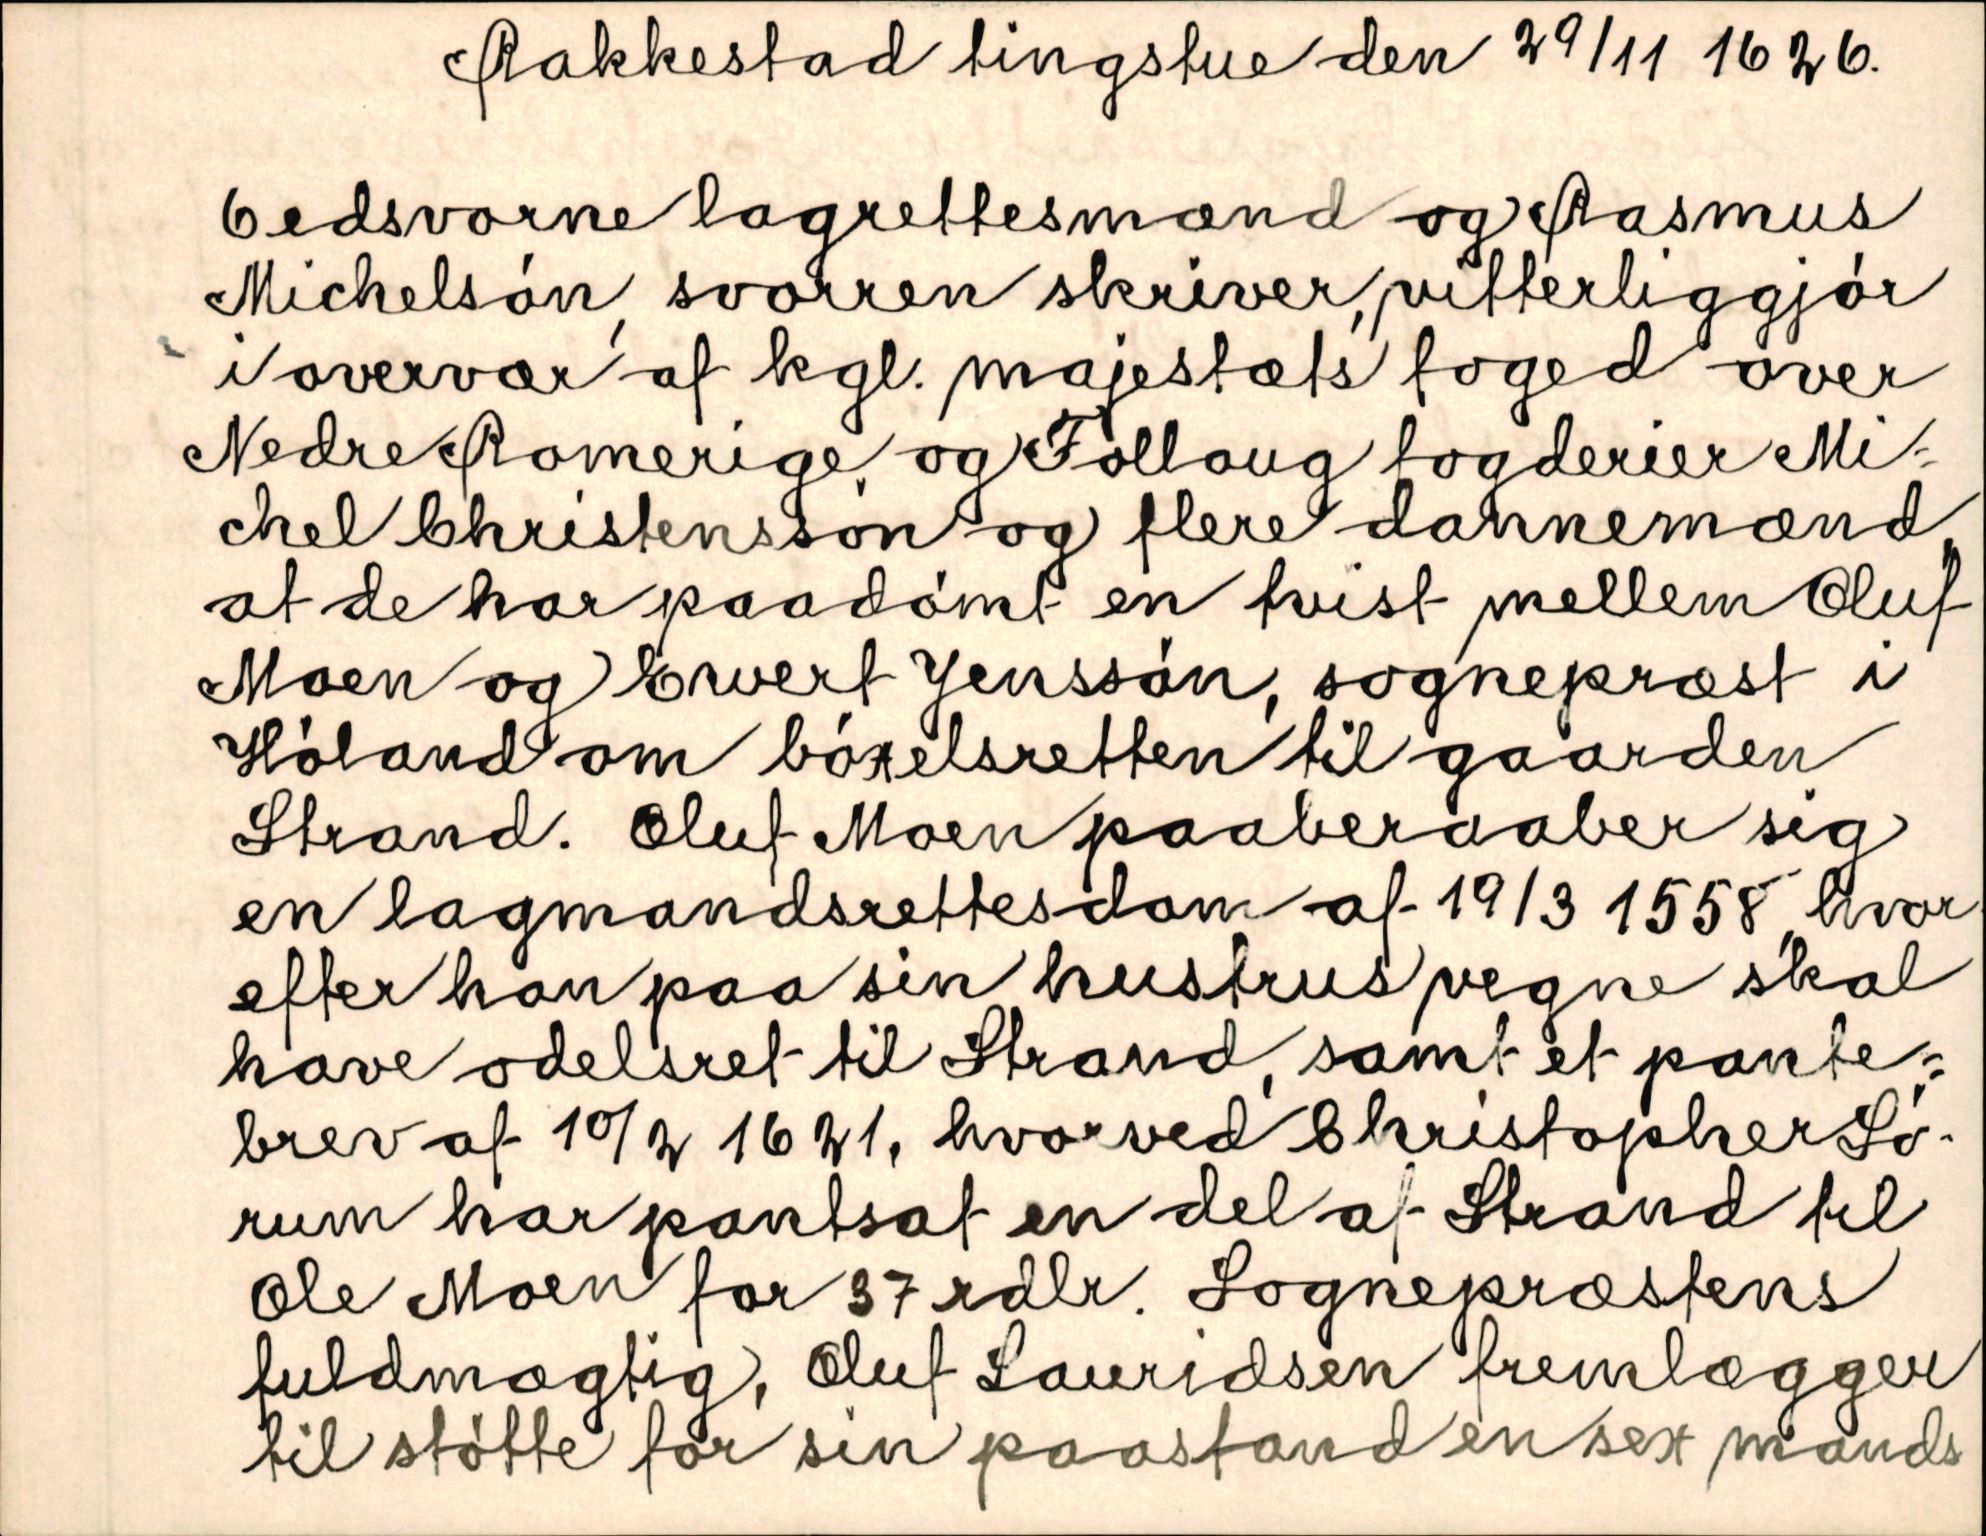 Rakkestad tingstue den 29/11 1626.
6 edsvorne lagrettesmænd og Rasmus
Michelsón, svorren skriver, vitterliggjór
i overvær af kgl. majestæts foged over
Nedre Romerige og Folloug fogderier Mi-
chel Christenssón og flere dannemænd,
at de har paadómt en tvist mellem Oluf
Moen og Ewert Jenssón, sognepræst i
Hóland om bóxelsretten til gaarden
Strand. Oluf Moen paaberaaber sig
en lagmandsrettesdom af 19/3 1558, hvor
efter han paa sin hustrus vegne skal
have odelsret til Strand, samt et pante-
brev af 10/2 1621, hvorved Christopher Só-
rum har pantsat en del af Strand til
Ole Moen for 37 rdlr. Sognepræstens
fuldmægtig, Oluf Lauridsen fremlægger
til stótte for sin paastand en sex mands